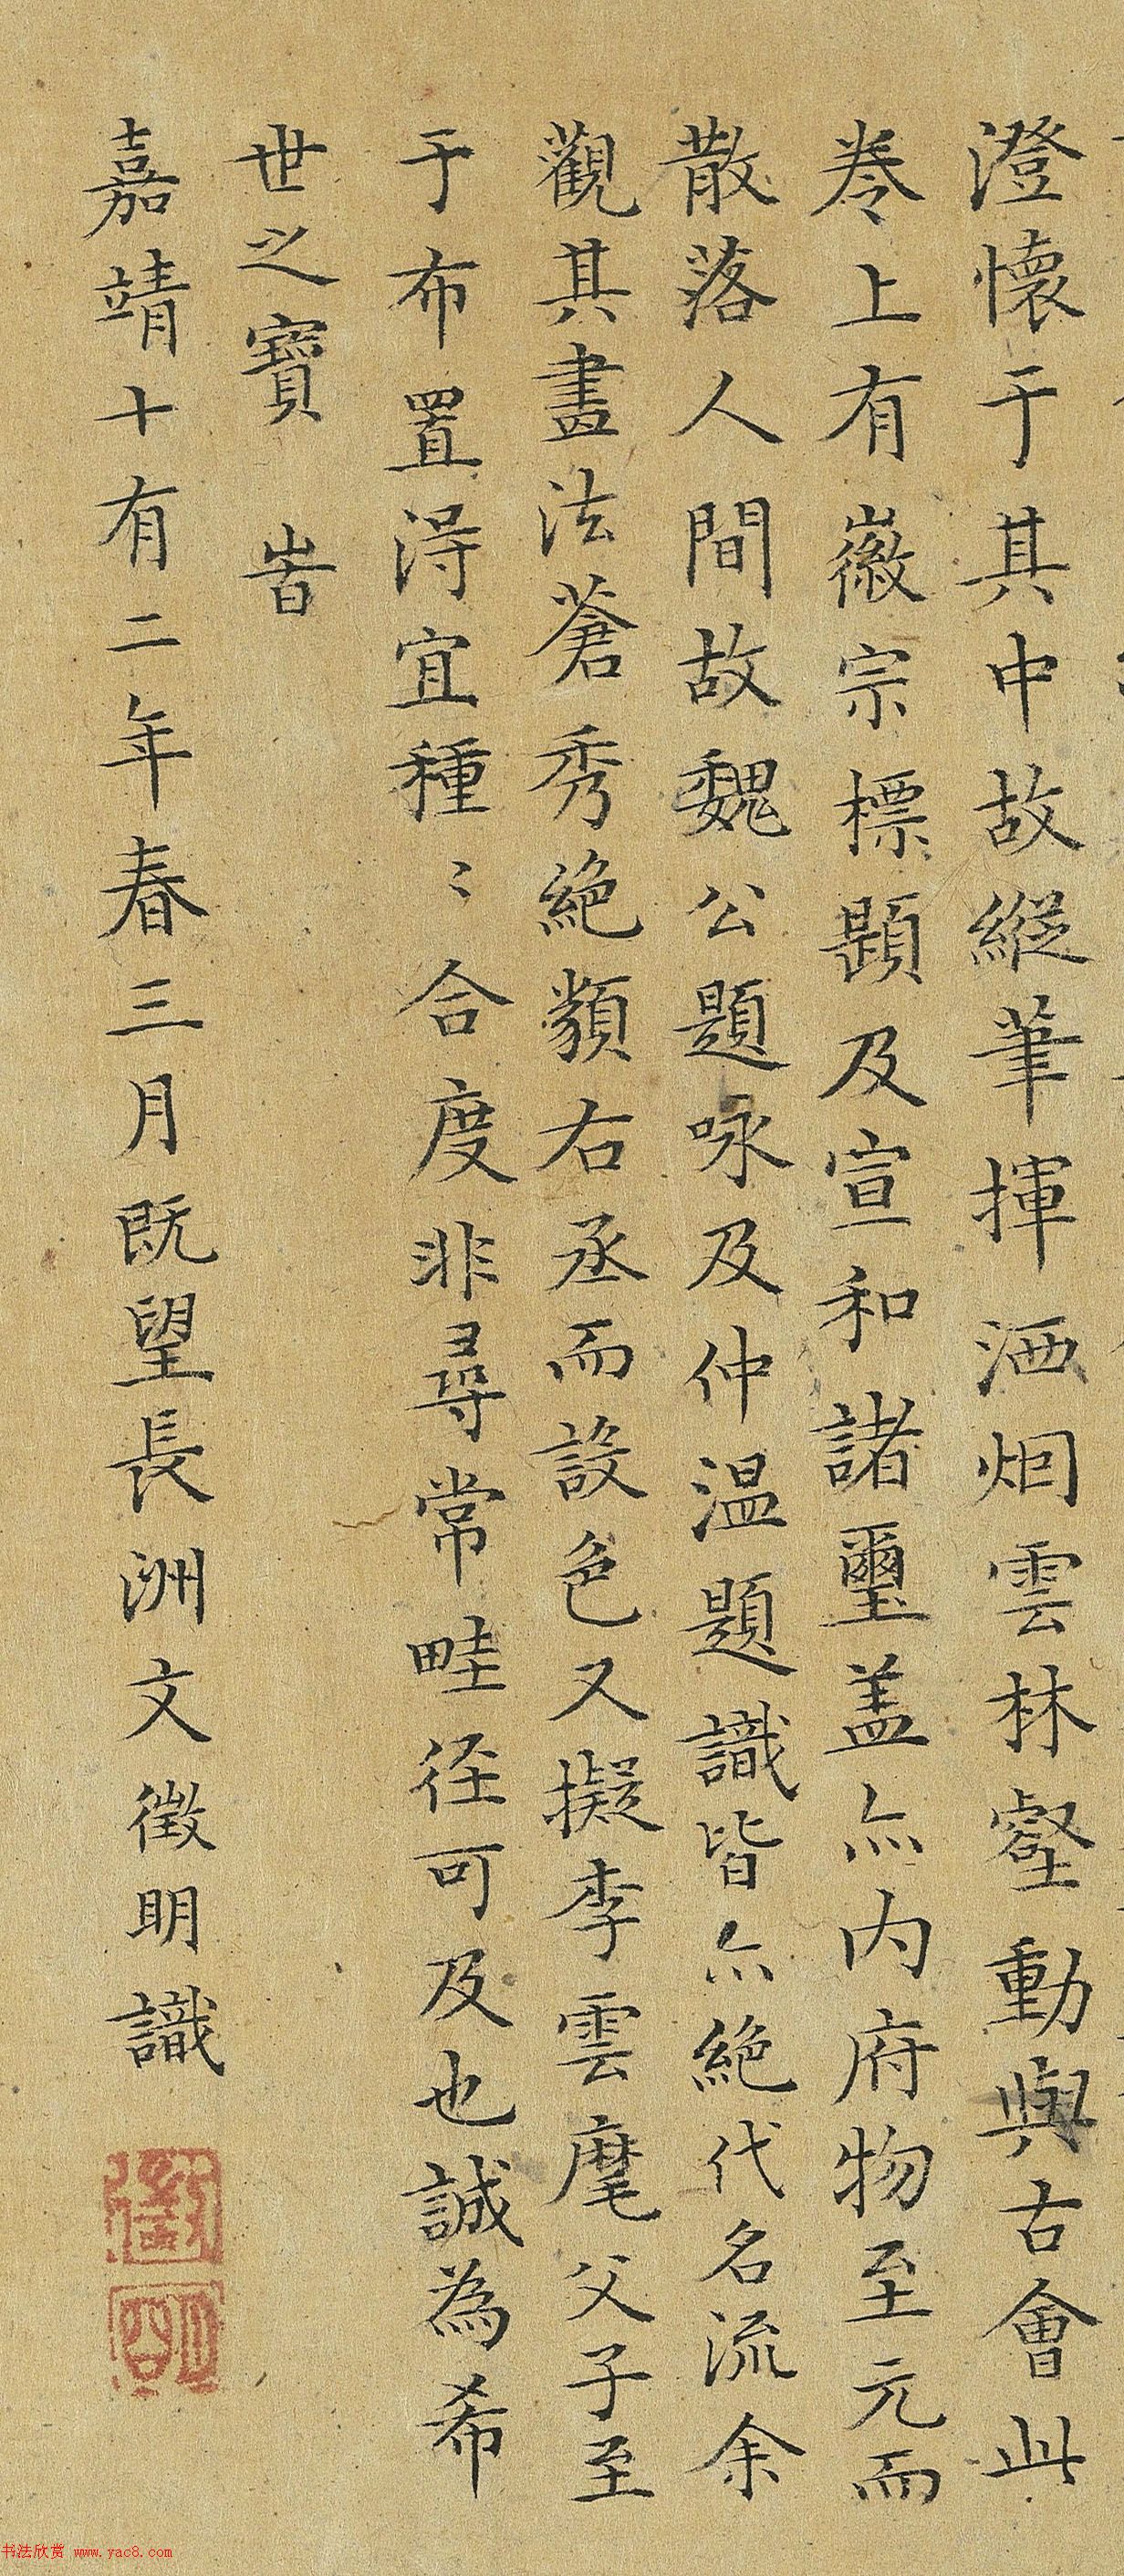 澄懷于其中故縱筆揮洒烟雲林壑動與古會此
卷上有徽宗標題及宣和諸璽盖亦内府物至元而
散落人間故魏公題咏及仲温題識皆亦絶代名流余
觀其畫法蒼秀絶類右丞而設色又擬李雲麾父子至
于布置得宜種〻合度非尋常畦径可及也誠為希
世之寶 旹
嘉靖十有二年春三月既望長洲文徵明識
徵
明
书法欣赏 www.yac8.com